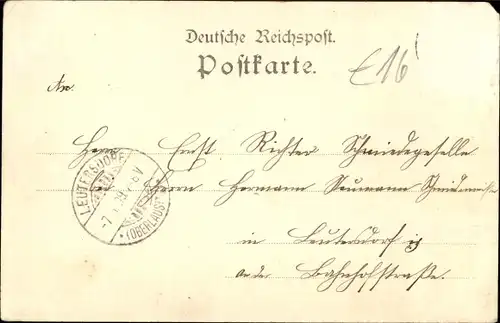 Deutsche Reichspost.
Postkarte.
£16
An
Herrn Ernst Richter Schmiedegeselle
bei Herrn Hermann Neumann Schmiedemeister
in Leutersdorf
an der Bahnhofstraße.
LEUTERSDORF
(OBERLAUSITZ)